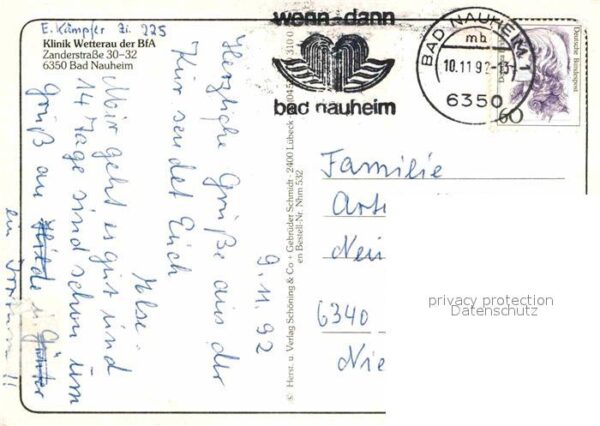 E. Kämpfer Zi. 225
Klinik Wetterau der BfA
Zanderstraße 30–32
6350 Bad Nauheim
wenn - dann
bad nauheim
BAD NAUHEIM 1
mb
10.11.92-13
6350
Deutsche Bundespost
60
9.11.92
Herzliche Grüße aus der
Kur sendet Euch
Ilse.
Mir geht es gut und
14 Tage sind schon um
Gruß an Hilde u. Günter
ein
© Herst. u. Verlag Schöning & Co + Gebrüder Schmidt · 2400 Lübeck
en Bestell-Nr. Nhm 532
Familie
6340
privacy protection
Datenschutz